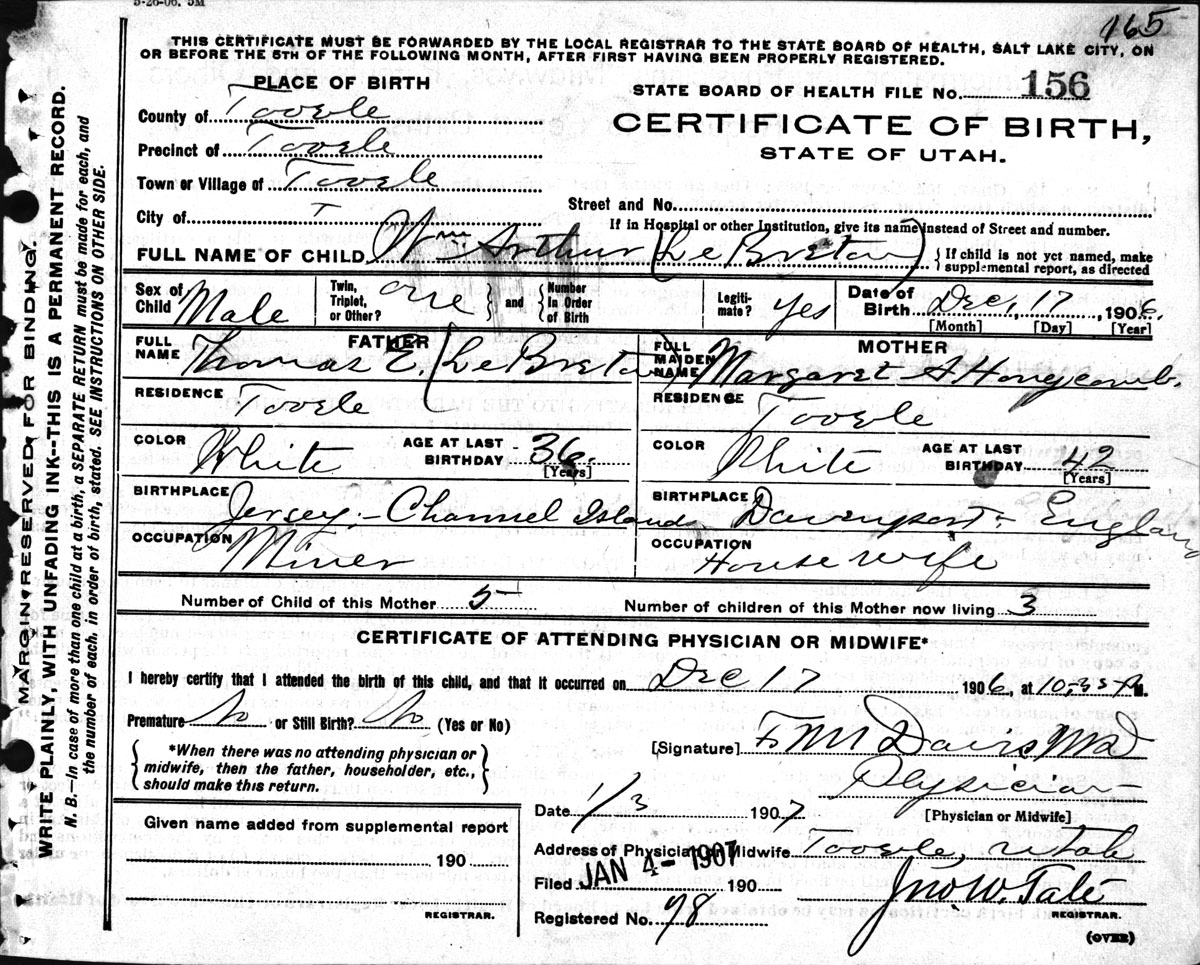 5-26-06. 5M
165
THIS CERTIFICATE MUST BE FORWARDED BY THE LOCAL REGISTRAR TO THE STATE BOARD OF HEALTH, SALT LAKE CITY, ON
OR BEFORE THE 5TH OF THE FOLLOWING MONTH, AFTER FIRST HAVING BEEN PROPERLY REGISTERED.
PLACE OF BIRTH
STATE BOARD OF HEALTH FILE No. 156
County of Tooele
CERTIFICATE OF BIRTH,
STATE OF UTAH.
Precinct of Tooele
Town or Village of Tooele
Street and No.
City of
If in Hospital or other Institution, give its name instead of Street and number.
FULL NAME OF CHILD Wm Arthur (Le Breton) { If child is not yet named, make supplemental report, as directed
Sex of Child Male Twin, Triplet, or Other? one } and { Number In Order of Birth Legiti-mate? yes Date of Birth Dec, 17, 1906.
[Month] [Day] [Year]
FATHER
FULL NAME Thomas E. (Le Breton)
MOTHER
FULL MAIDEN NAME Margaret A Honeycomb.
RESIDENCE Tooele
RESIDENCE Tooele
COLOR White AGE AT LAST BIRTHDAY 36. [Years]
COLOR White AGE AT LAST BIRTHDAY 42 [Years]
BIRTHPLACE Jersey, - Channel Islands
BIRTHPLACE Davenport - England
OCCUPATION Miner
OCCUPATION House wife
Number of Child of this Mother 5 Number of children of this Mother now living 3
CERTIFICATE OF ATTENDING PHYSICIAN OR MIDWIFE*
I hereby certify that I attended the birth of this child, and that it occurred on Dec 17 1906, at 10,35
Premature No or Still Birth? No (Yes or No)
{ *When there was no attending physician or midwife, then the father, householder, etc., should make this return. }
[Signature] F M Davis, MD
Physician
[Physician or Midwife]
Date 1/3 1907
Given name added from supplemental report
190
REGISTRAR.
Address of Physician or Midwife Tooele, Utah
Filed JAN 4 - 1907 190 Jno. W. Tate
REGISTRAR.
Registered No. 98
(OVER)
MARGIN RESERVED FOR BINDING.
WRITE PLAINLY, WITH UNFADING INK--THIS IS A PERMANENT RECORD.
N. B.--In case of more than one child at a birth, a SEPARATE RETURN must be made for each, and
the number of each, in order of birth, stated. SEE INSTRUCTIONS ON OTHER SIDE.